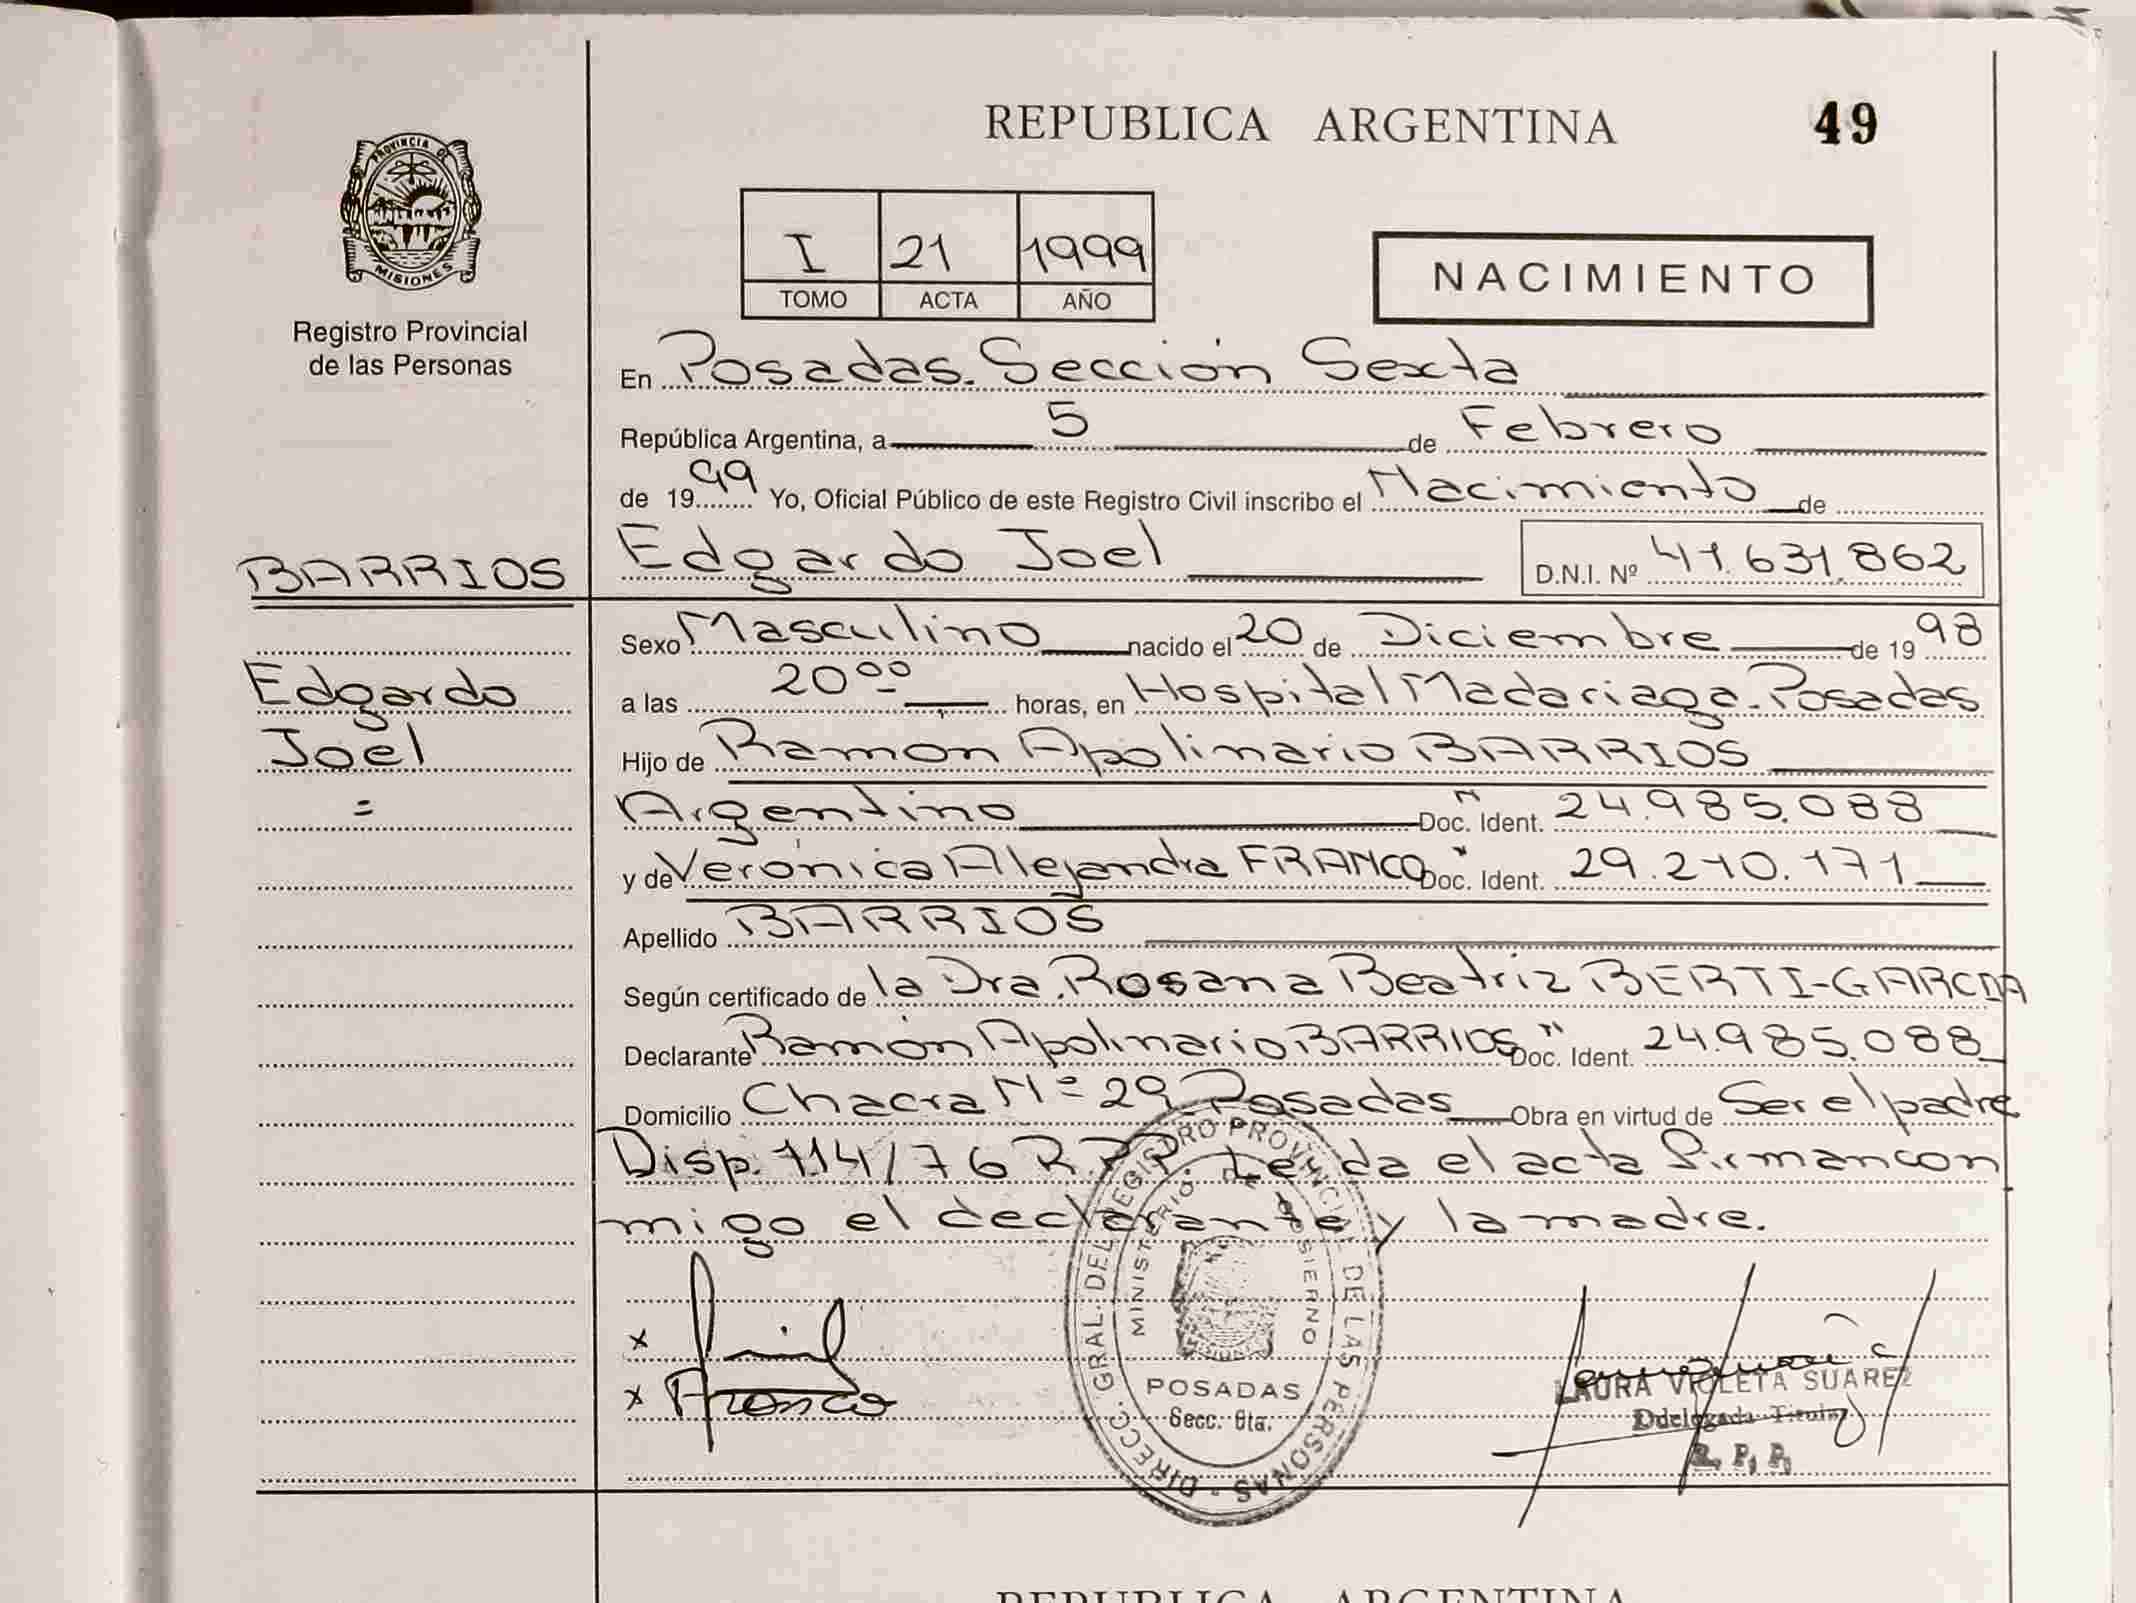 REPUBLICA ARGENTINA
49
PROVINCIA DE
MISIONES
Registro Provincial
de las Personas
I 21 1999
TOMO ACTA AÑO
NACIMIENTO
En Posadas. Sección Sexta
República Argentina, a 5 de Febrero
de 1999 Yo, Oficial Público de este Registro Civil inscribo el Nacimiento de
BARRIOS
Edgardo Joel D.N.I. Nº 41.631.862
Sexo Masculino nacido el 20 de Diciembre de 1998
Edgardo
a las 20 00 horas, en Hospital Madariaga. Posadas
Joel
Hijo de Ramón Apolinario BARRIOS
=
Argentino Doc. Ident. 24.985.088
y de Verónica Alejandra FRANCO Doc. Ident. 29.210.171
Apellido BARRIOS
Según certificado de la Dra. Rosana Beatriz BERTI-GARCIA
Declarante Ramón Apolinario BARRIOS Doc. Ident. 24.985.088
Domicilio Chacra Nº 29 Posadas Obra en virtud de Ser el padre
Disp. 114/76 R.P.P. Leída el acta firman con
migo el declarante y la madre.
x
x Franco
DIRECC. GRAL. DEL REGISTRO PROVINCIAL DE LAS PERSONAS -
MINISTERIO DE GOBIERNO
POSADAS
Secc. 6ta.
LAURA VIOLETA SUAREZ
Ddelegada Titular
R. P. P.
REPUBLICA ARGENTINA